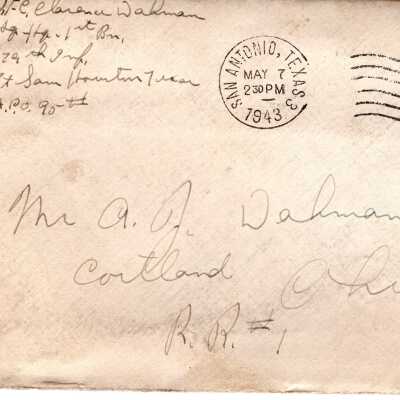 Clarence Dahman
Hq. Hq. 1st Bn.
Inf.
Ft Sam Houston Texas
A.P.O. 95th
SAN ANTONIO, TEXAS 3
MAY 7
230 PM
1943
Mr A. J. Dahman
Cortland Ohi
R.R. #1